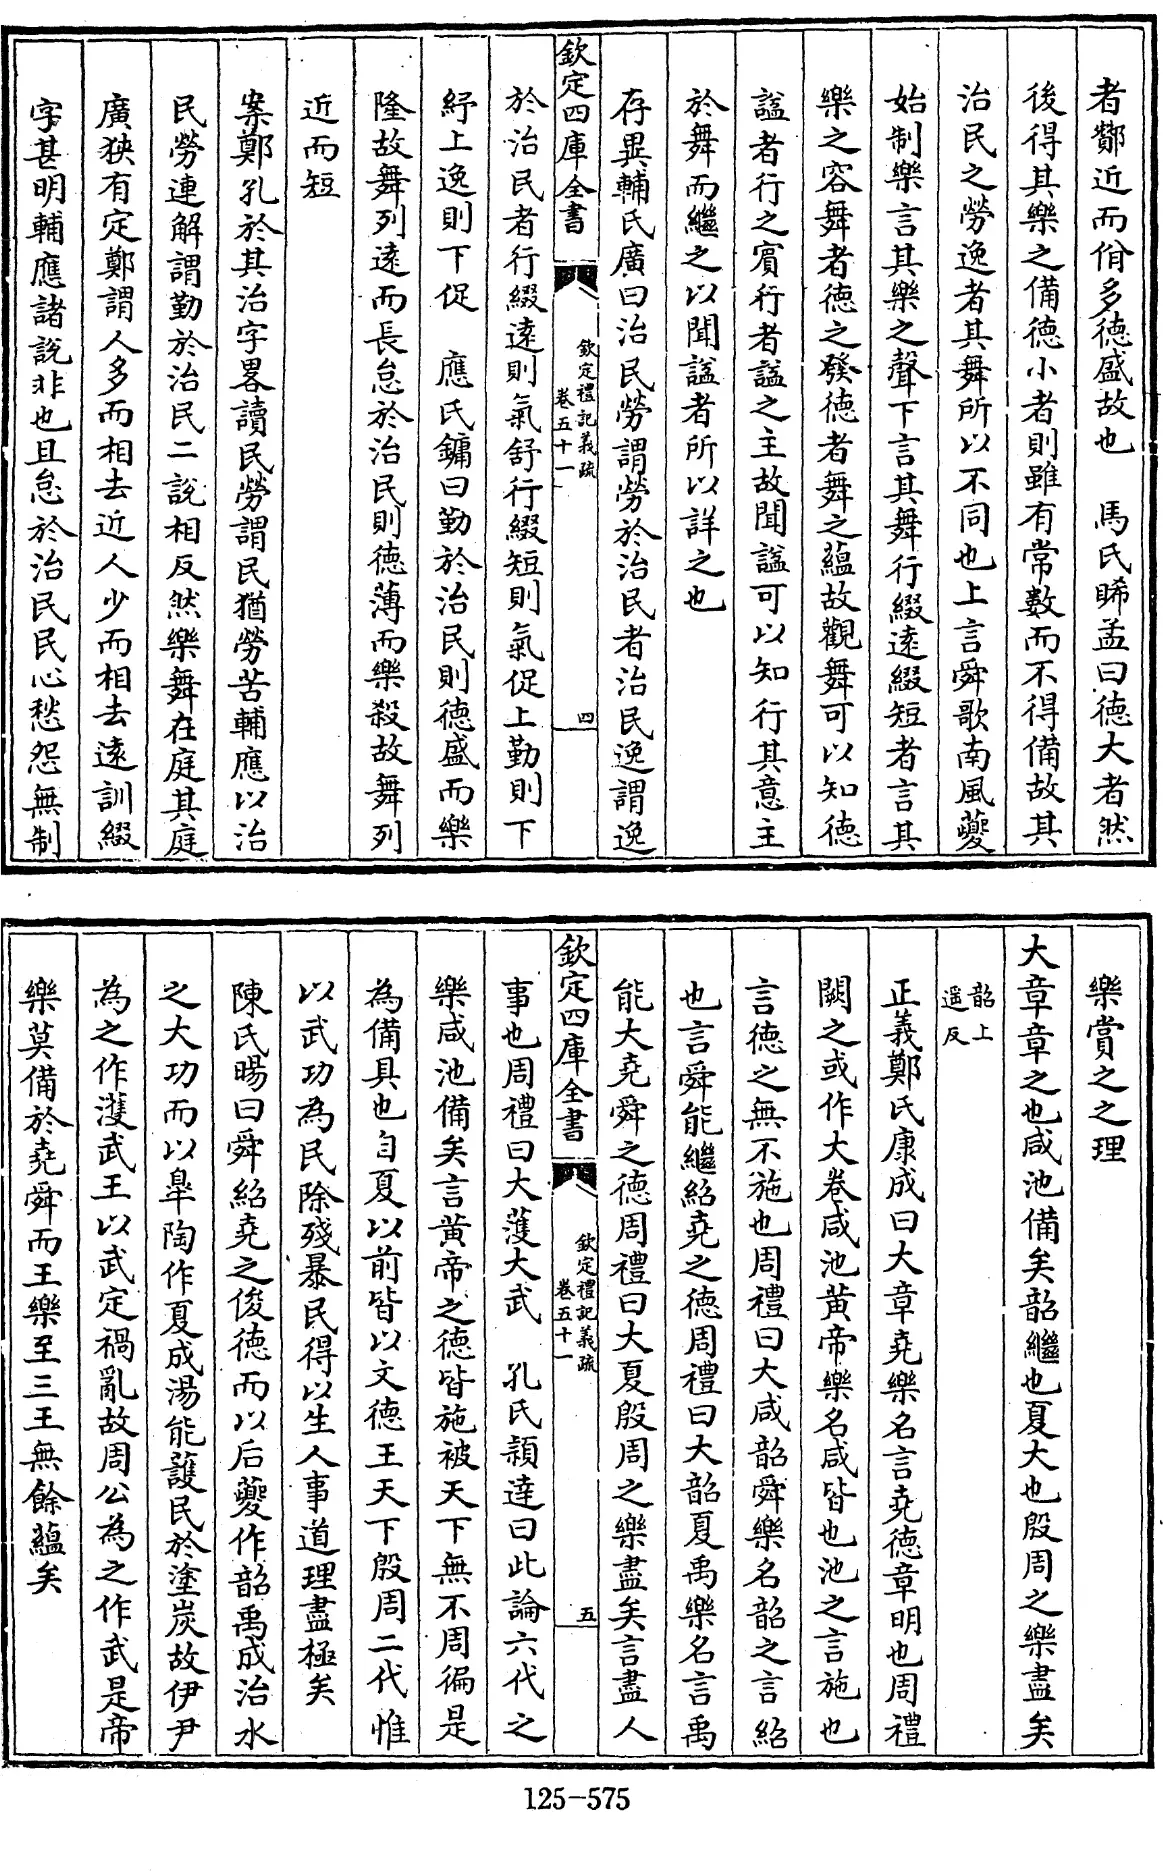 者酇近而佾多德盛故也　馬氏睎孟曰德大者然
後得其樂之備德小者則雖有常數而不得備故其
治民之勞逸者其舞所以不同也上言舜歌南風夔
始制樂言其樂之聲下言其舞行綴遠綴短者言其
樂之容舞者德之發德者舞之蘊故觀舞可以知德
諡者行之賓行者諡之主故聞諡可以知行其意主
於舞而繼之以聞諡者所以詳之也
存異輔氏廣曰治民勞謂勞於治民者治民逸謂逸
欽定四庫全書　欽定禮記義疏　卷五十一　四
於治民者行綴遠則氣舒行綴短則氣促上勤則下
紓上逸則下促　應氏鏞曰勤於治民則德盛而樂
隆故舞列遠而長怠於治民則德薄而樂殺故舞列
近而短
案鄭孔於其治字畧讀民勞謂民猶勞苦輔應以治
民勞連解謂勤於治民二說相反然樂舞在庭其庭
廣狹有定鄭謂人多而相去近人少而相去遠訓綴
字甚明輔應諸說非也且怠於治民民心愁怨無制
樂賞之之理
大章章之也咸池備矣韶繼也夏大也殷周之樂盡矣
韶上遥反
正義鄭氏康成曰大章堯樂名言堯德章明也周禮
闕之或作大卷咸池黃帝樂名咸皆也池之言施也
言德之無不施也周禮曰大咸韶舜樂名韶之言紹
也言舜能繼紹堯之德周禮曰大韶夏禹樂名言禹
能大堯舜之德周禮曰大夏殷周之樂盡矣言盡人
欽定四庫全書　欽定禮記義疏　卷五十一　五
事也周禮曰大濩大武　孔氏穎達曰此論六代之
樂咸池備矣言黃帝之德皆施被天下無不周徧是
為備具也自夏以前皆以文德王天下殷周二代惟
以武功為民除殘暴民得以生人事道理盡極矣
陳氏暘曰舜紹堯之俊德而以后夔作韶禹成治水
之大功而以臯陶作夏成湯能護民於塗炭故伊尹
為之作濩武王以武定禍亂故周公為之作武是帝
樂莫備於堯舜而王樂至三王無餘蘊矣
125-575